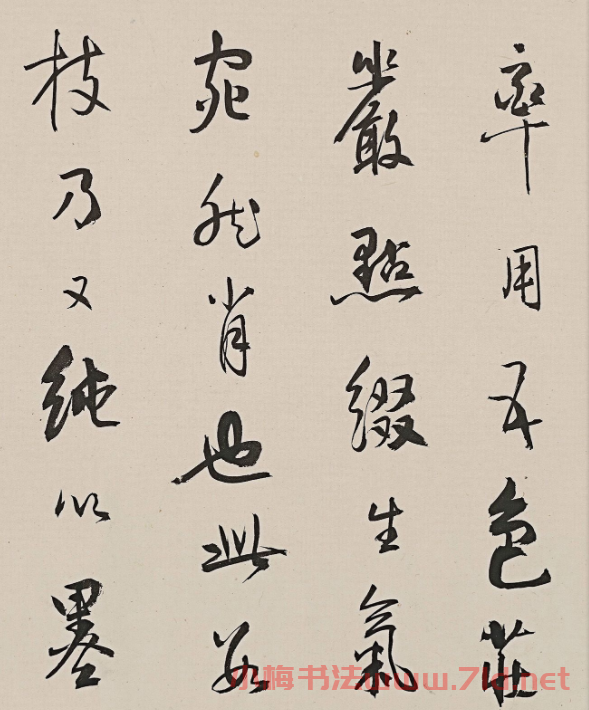 率用五色莊
嚴點綴生氣
宛然肖也此數
枝乃又純以墨
小梅书法www.7ld.net